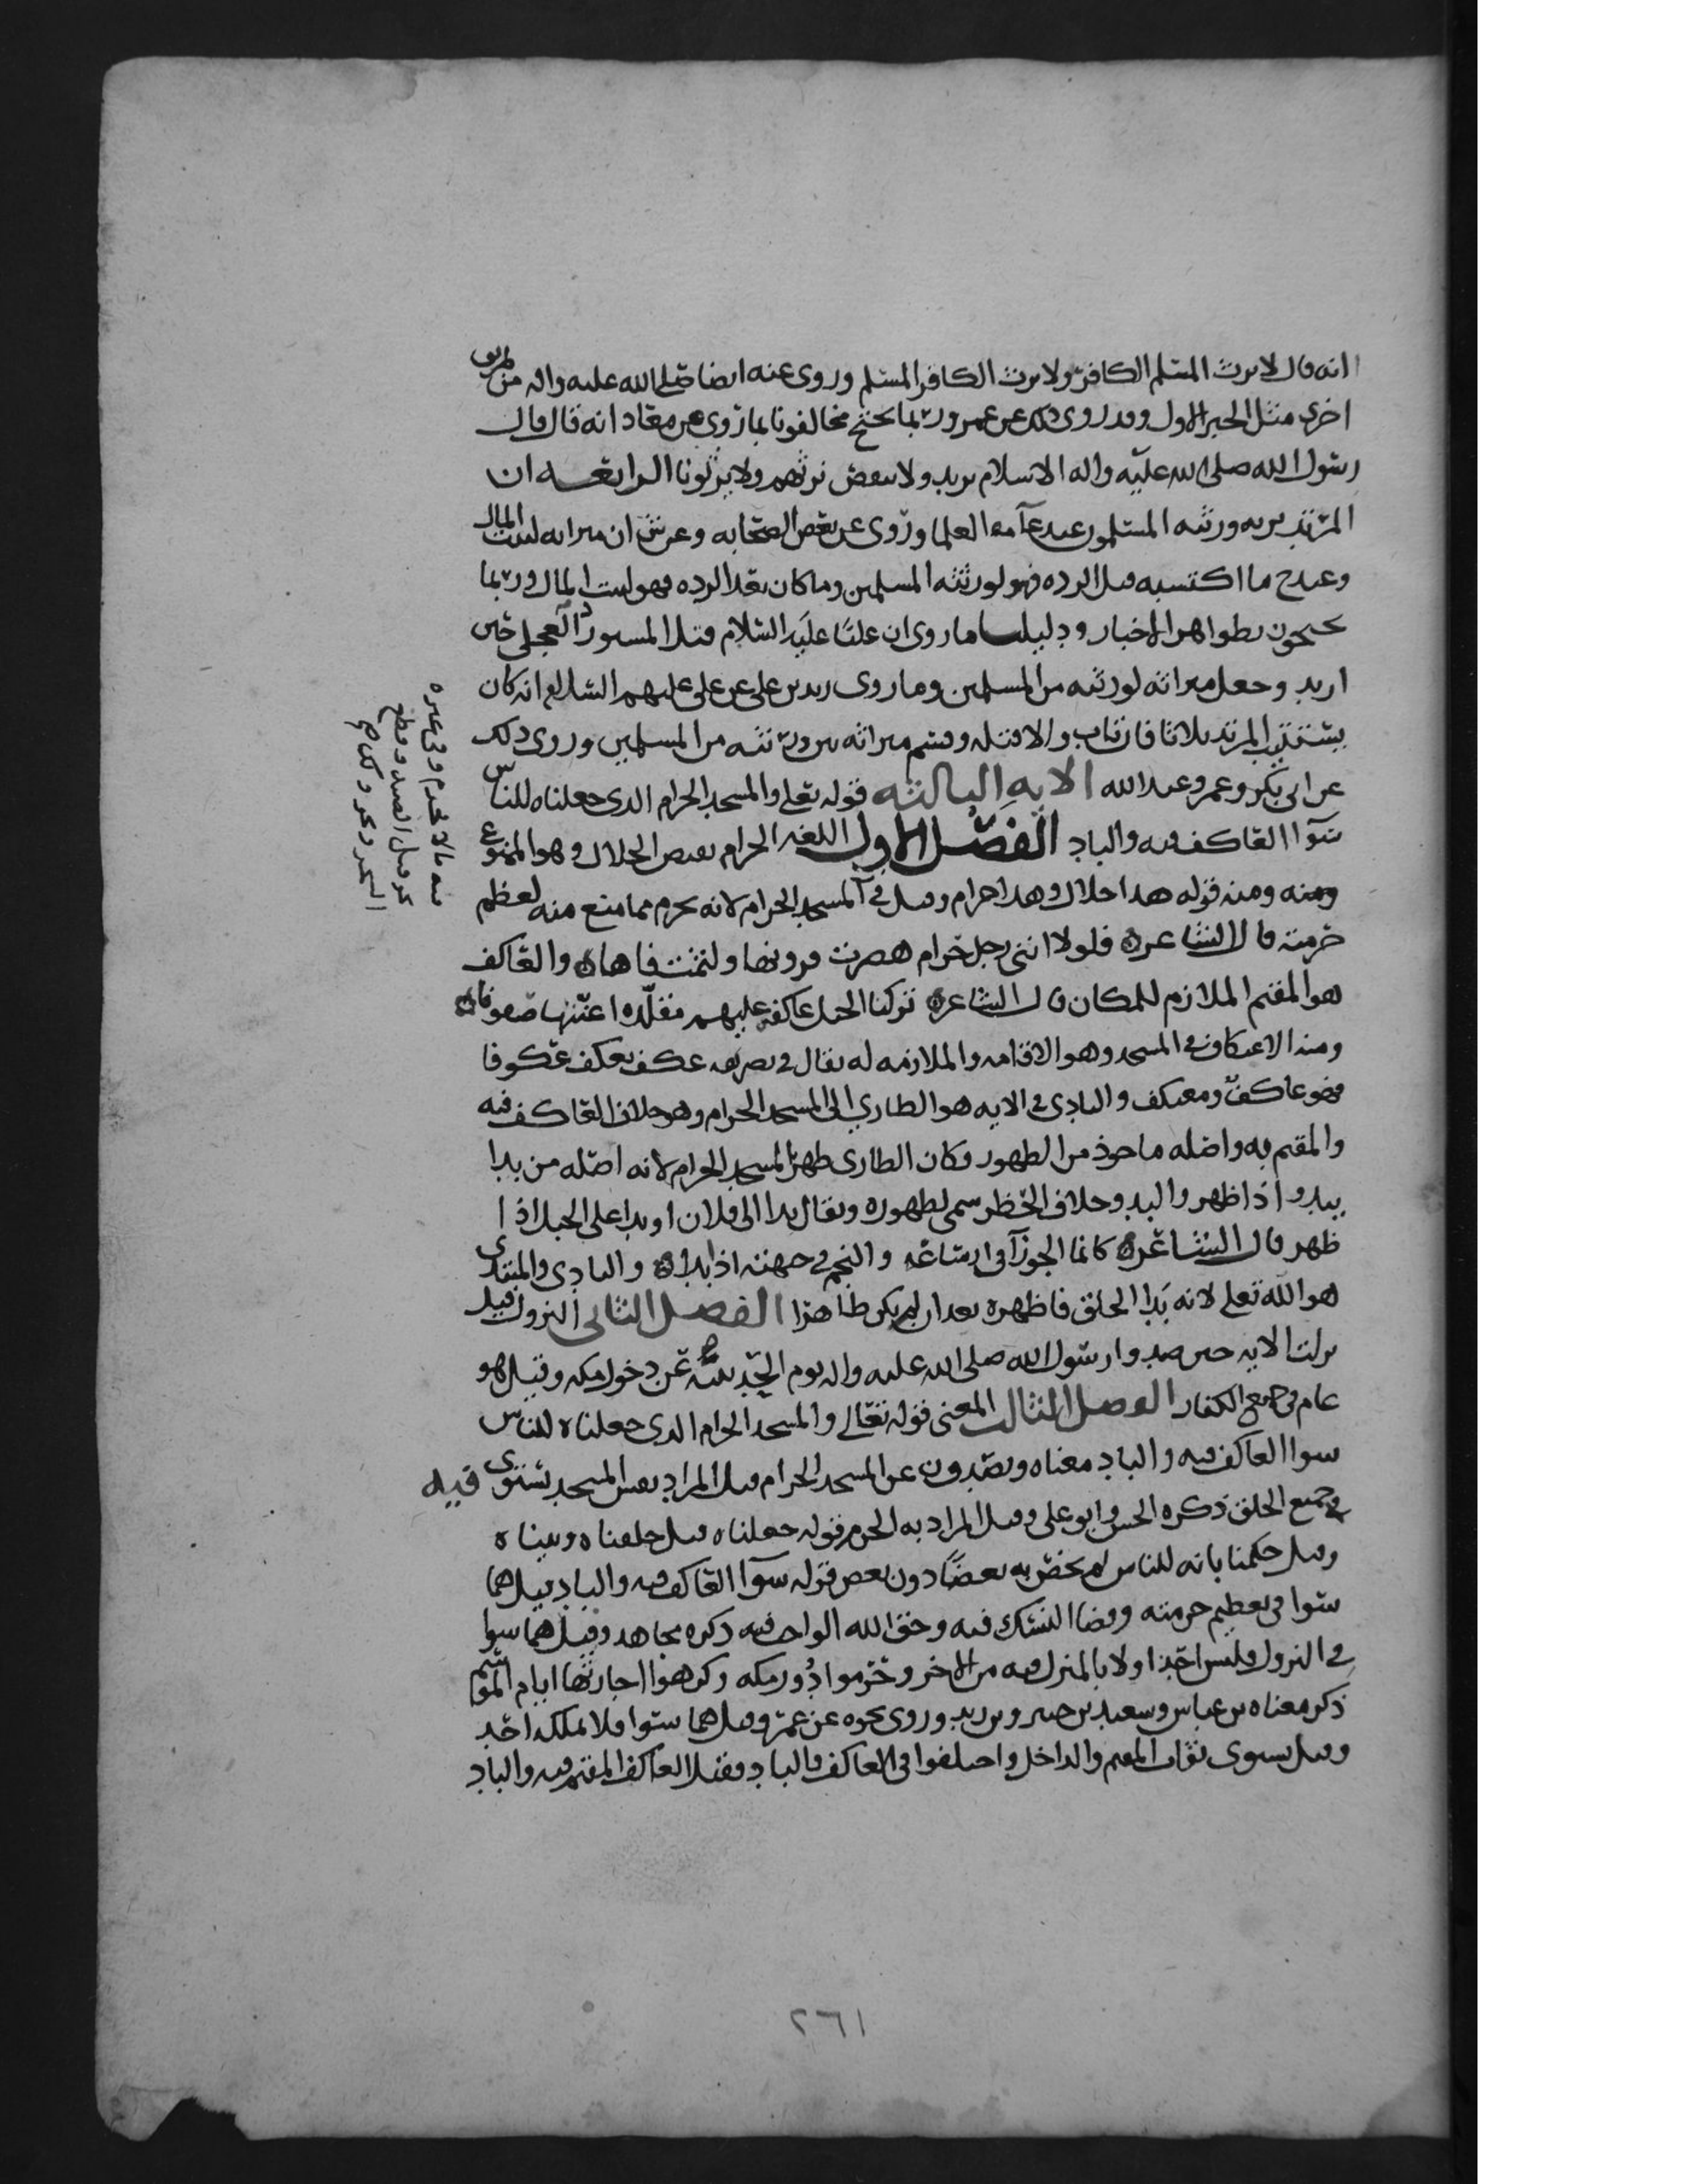 انه قال لا يرث المسلم الكافر ولا يرث الكافر المسلم وروي عنه ايضا صلى الله عليه واله من طريق
اخرى مثل الخبر الاول وقد روي ذلك عن عمر وربما يحتج مخالفونا بما روي عن معاذ انه قال قال
رسول الله صلى الله عليه واله الاسلام يزيد ولا ينقص نرثهم ولا يرثونا الرابعه ان
المرتد يرثه ورثته المسلمون عند عامة العلما وروي عن بعض الصحابه وعن ش ان ميراثه لبيت المال
وعند ح ما اكتسبه قبل الرده فهو لورثته المسلمين وما كان بعد الرده فهو لبيت المال وربما
يحتجون بظواهر الاخبار ودليلنا ما روي ان عليا عليه السلام قتل المستورد العجلي حين
ارتد وجعل ميراثه لورثته من المسلمين وما روى زيد بن علي عن علي عليهم السلام انه كان
يستتيب المرتد ثلاثا فان تاب والا قتله وقسم ميراثه بين ورثته من المسلمين وروي ذلك
عن ابي بكر وعمر وعبد الله الايه الثالثه قوله تعلى والمسجد الحرام الذي جعلناه للناس
سوآا العاكف فيه والباد الفصل الاول اللغه الحرام نقيض الحلال وهو الممنوع
ومنه قوله هذا حلال وهذا حرام وقيل في المسجد الحرام لانه يحرم مما منع منه لعظم
حرمته قال الشاعر ه فلولا انني رجل حرام هصرت قرونها ولثمت فاها ه والعاكف
هو المقيم الملازم للمكان قال الشاعر ه تركنا الخيل عاكفه عليهم مقلده اعنتها صفوفا ه
ومنه الاعتكاف في المسجد وهو الاقامه والملازمه له يقال في تصريفه عكف يعكف عكوفا
فهو عاكف ومعتكف والبادي في الايه هو الطاري الى المسجد الحرام وهو خلاف العاكف فيه
والمقيم به واصله ماخوذ من الظهور فكان الطاري ظهر للمسجد الحرام لانه اصله من بدا
يبدو اذا ظهر والبدو خلاف الحظر سمي لظهوره ويقال بدا الى فلان او بدا على الجبل اذا
ظهر قال الشاعر ه كانما الجوزآ في ارساغه والنجم في جبهته اذا بدا ه والبادي والمبتدي
هو الله تعلى لانه بدا الخلق فاظهره بعد ان لم يكن ظاهرا الفصل الثاني النزول قيل
نزلت الايه حين صدوا رسول الله صلى الله عليه واله يوم الحديبيه عن دخول مكه وقيل هو
عام في جميع الكفار الفصل الثالث المعنى قوله تعالى والمسجد الحرام الذي جعلناه للناس
سوا العاكف فيه والباد معناه ويصدون عن المسجد الحرام قيل المراد نفس المسجد تستوي فيه
في جميع الخلق ذكره الحسن وابو علي وقيل المراد به الحرم قوله جعلناه قيل خلقناه وبيناه
وقيل حكمنا بانه للناس لم يخص به بعضا دون بعض قوله سوآا العاكف فيه والباد قيل هما
سوا في تعظيم حرمته وقضا النسك فيه وحق الله الواجب فيه ذكره مجاهد وقيل هما سوا
في النزول فليس احد اولا بالمنزل فيه من الاخر وحرموا دور مكه وكرهوا اجارتها ايام الموسم
ذكر معناه بن عباس وسعيد بن جبير وبن زيد وروي نحوه عن عمر وقيل هما سوا فلا يملكه احد
وقيل يستوي ثواب المقيم والداخل واختلفوا في العاكف والباد فقيل العاكف المقيم فيه والباد
٢٦١